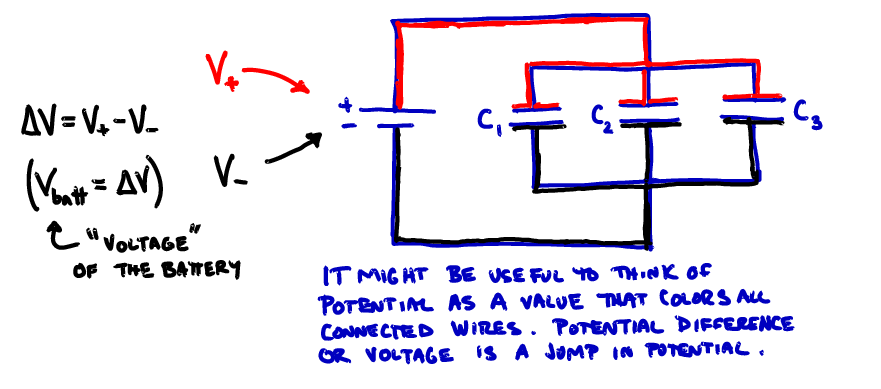 V₊
+
−
C₁
C₂
C₃
ΔV = V₊ - V₋
V₋
(V_batt = ΔV)
"VOLTAGE"
OF THE BATTERY
IT MIGHT BE USEFUL TO THINK OF
POTENTIAL AS A VALUE THAT COLORS ALL
CONNECTED WIRES. POTENTIAL DIFFERENCE
OR VOLTAGE IS A JUMP IN POTENTIAL.